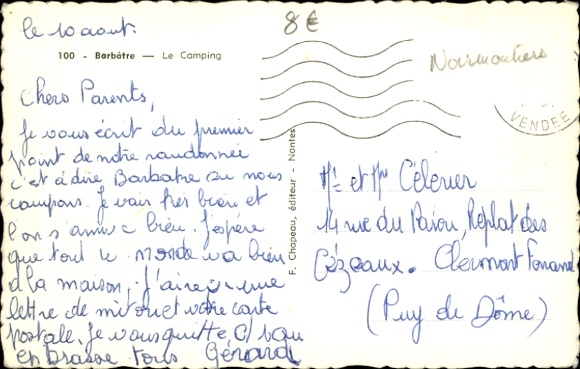 le 10 août.
8€
100 - Barbâtre — Le Camping
Noirmoutiers
VENDEE
Chers Parents,
Je vous écrit du premier
point de notre randonnée
c'est à dire Barbatre ou nous
campons. Je vais très bien et
l'on s'amuse bien. J'espère
que tout le monde va bien
à la maison. J'ai reçu une
lettre de mitou et votre carte
postale. Je vous quitte, et vous
embrasse tous Gérard
F. Chapeau, éditeur - Nantes
Mr et Mme Célérier
14 rue du Replat des
Cézeaux. Clermont Ferrand
(Puy de Dôme)